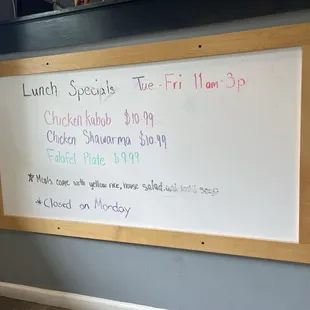 Lunch Specials Tue - Fri 11am-3p
Chicken Kabob $10.99
Chicken Shawarma $10.99
Falafel Plate $9.99
* Meals come with yellow rice, house salad, and lentil soup
* Closed on Monday